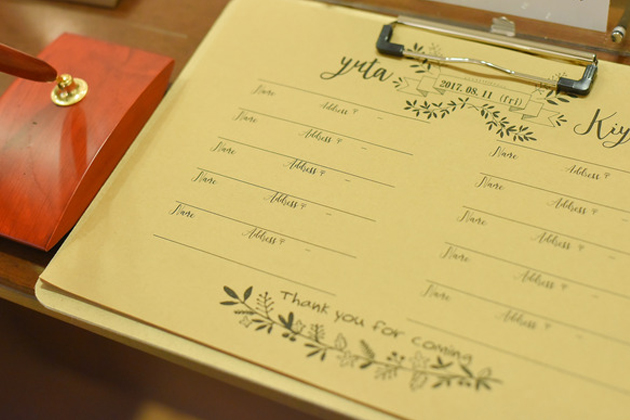 yuta
2017. 08. 11. (fri)
Kiy
Name
Address 〒 -
Name
Address 〒 -
Name
Address 〒 -
Name
Address 〒 -
Name
Address 〒 -
Name
Address 〒
Name
Address 〒
Name
Address 〒
Name
Address 〒
Name
Address 〒
Thank you for coming